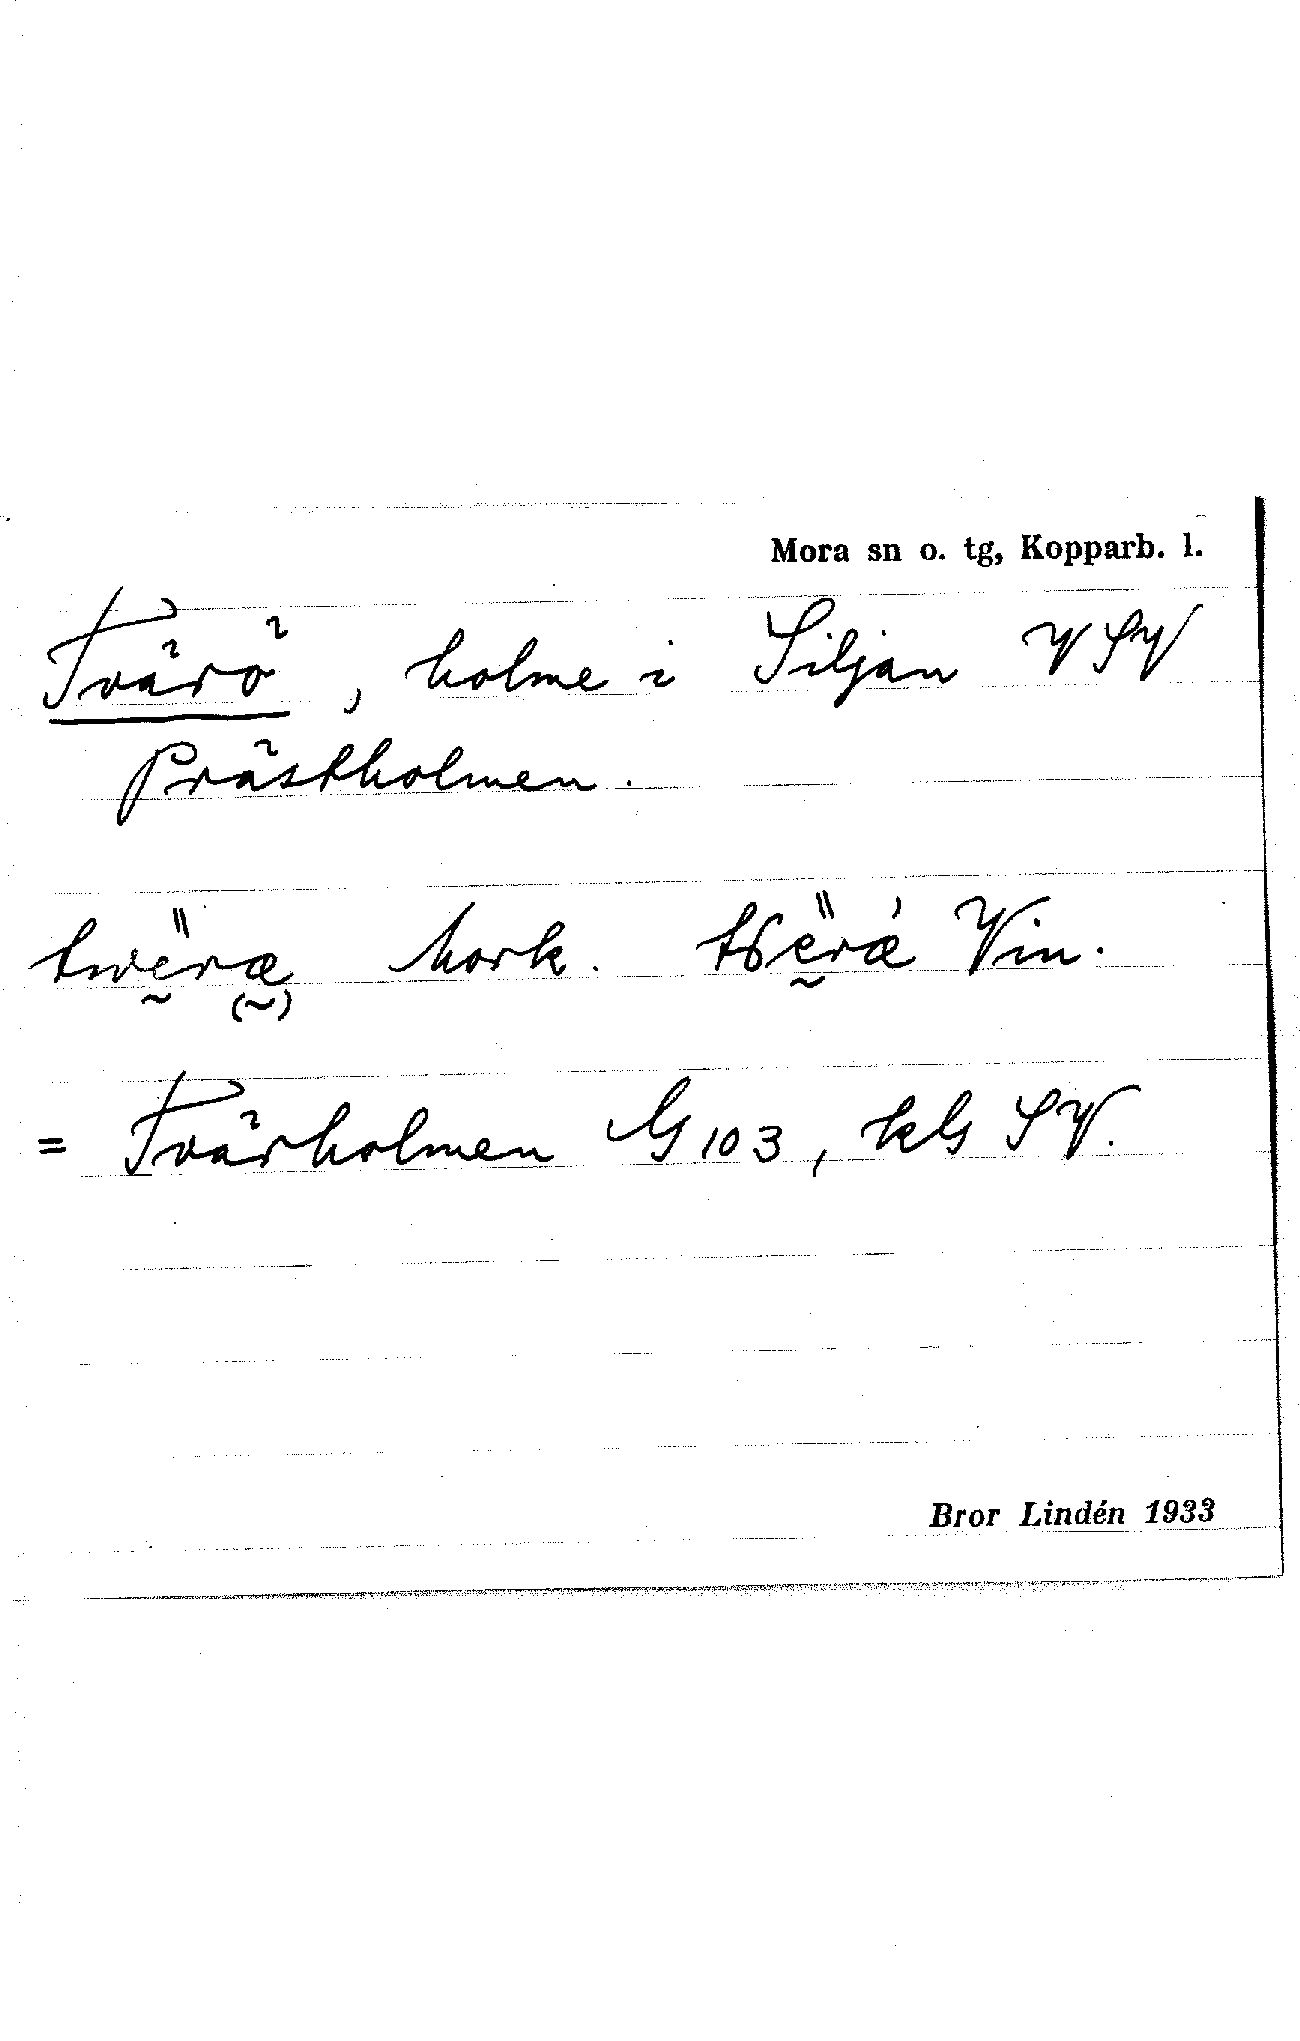 Mora sn o. tg, Kopparb. l.
Tvärö, holme i Siljan VSV
Prästholmen.
Mork. Vin.
= Tvärholmen G 103, kG SV.
Bror Lindén 1933